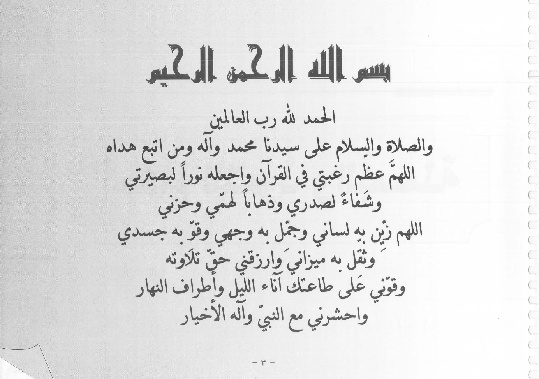 بسم الله الرحمن الرحيم
الحمد لله رب العالمين
والصلاة والسلام على سيدنا محمد وآله ومن اتبع هداه
اللهمَّ عظم رغبتي في القرآن واجعله نوراً لبصيرتي
وشفاءً لصدري وذهاباً لهمّي وحزني
اللهم زيّن به لساني وجمّل به وجهي وقوّ به جسدي
وثقّل به ميزاني وارزقني حقّ تلاوته
وقوّني على طاعتك آناء الليل وأطراف النهار
واحشرني مع النبيّ وآله الأخيار
- ٣ -